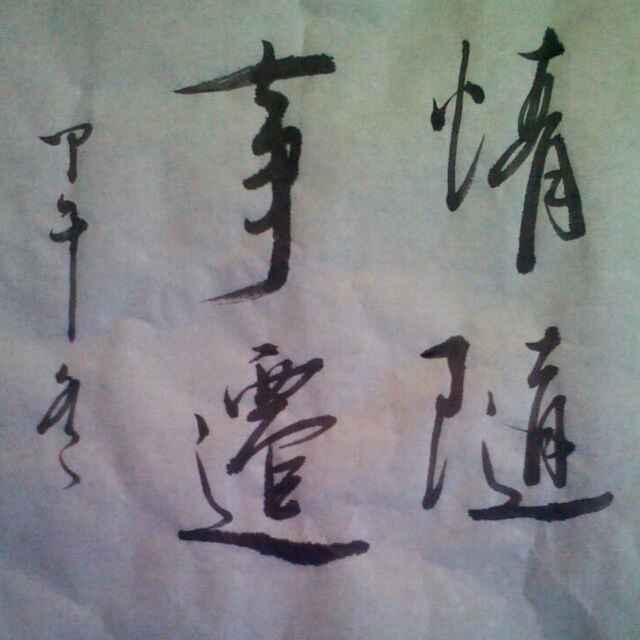 情随
事遷
甲午冬